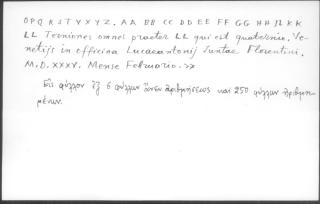 O P Q R S T V X Y Z. AA BB CC DD EE FF GG HH II KK
LL Terniones omnes praeter LL qui est quaternio. Ve-
netijs in officina Lucaeantonij Iuntae Florentini.
M.D.XXXV. Mense Februario. >>
Εἰς φύλλον ἐξ 6 φύλλων ἄνευ ἀριθμήσεως καὶ 250 φύλλων ἀριθμη-
μένων.